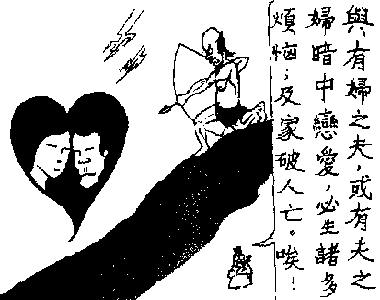 與有婦之夫，或有夫之
婦暗中戀愛，必生諸多
煩惱；及家破人亡。唉！